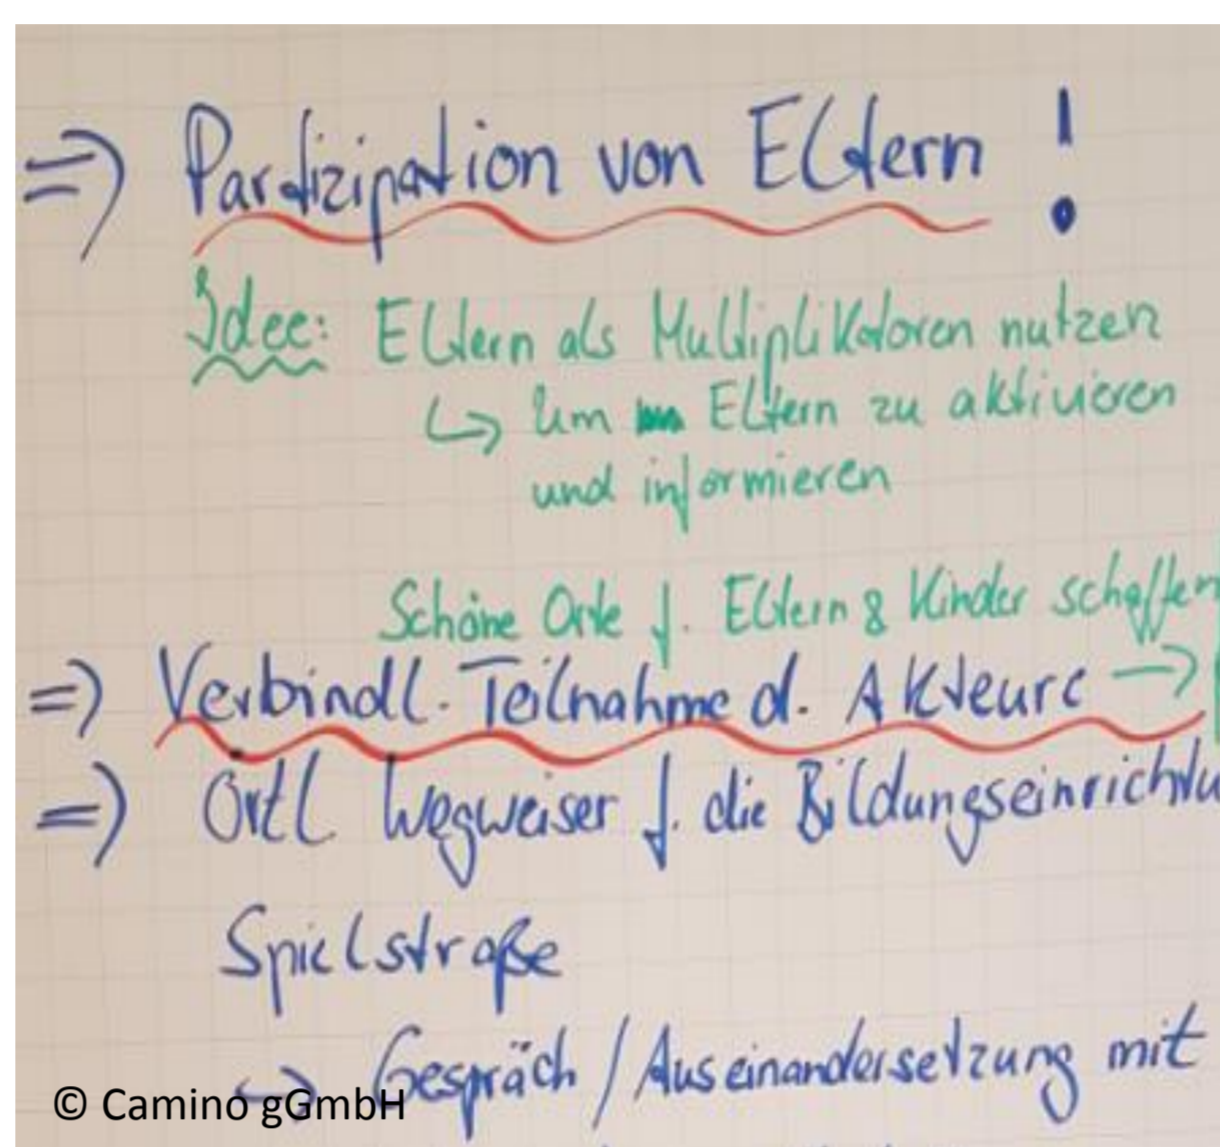 => Partizipation von Eltern !
Idee: Eltern als Multiplikatoren nutzen
↳ um Eltern zu aktivieren
und informieren
Schöne Orte f. Eltern & Kinder schaffen
=> Verbindl. Teilnahme d. Akteure →
=> Örtl Wegweiser f. die Bildungseinrichtu
Spielstraße
↳ Gespräch / Auseinandersetzung mit
© Camino gGmbH